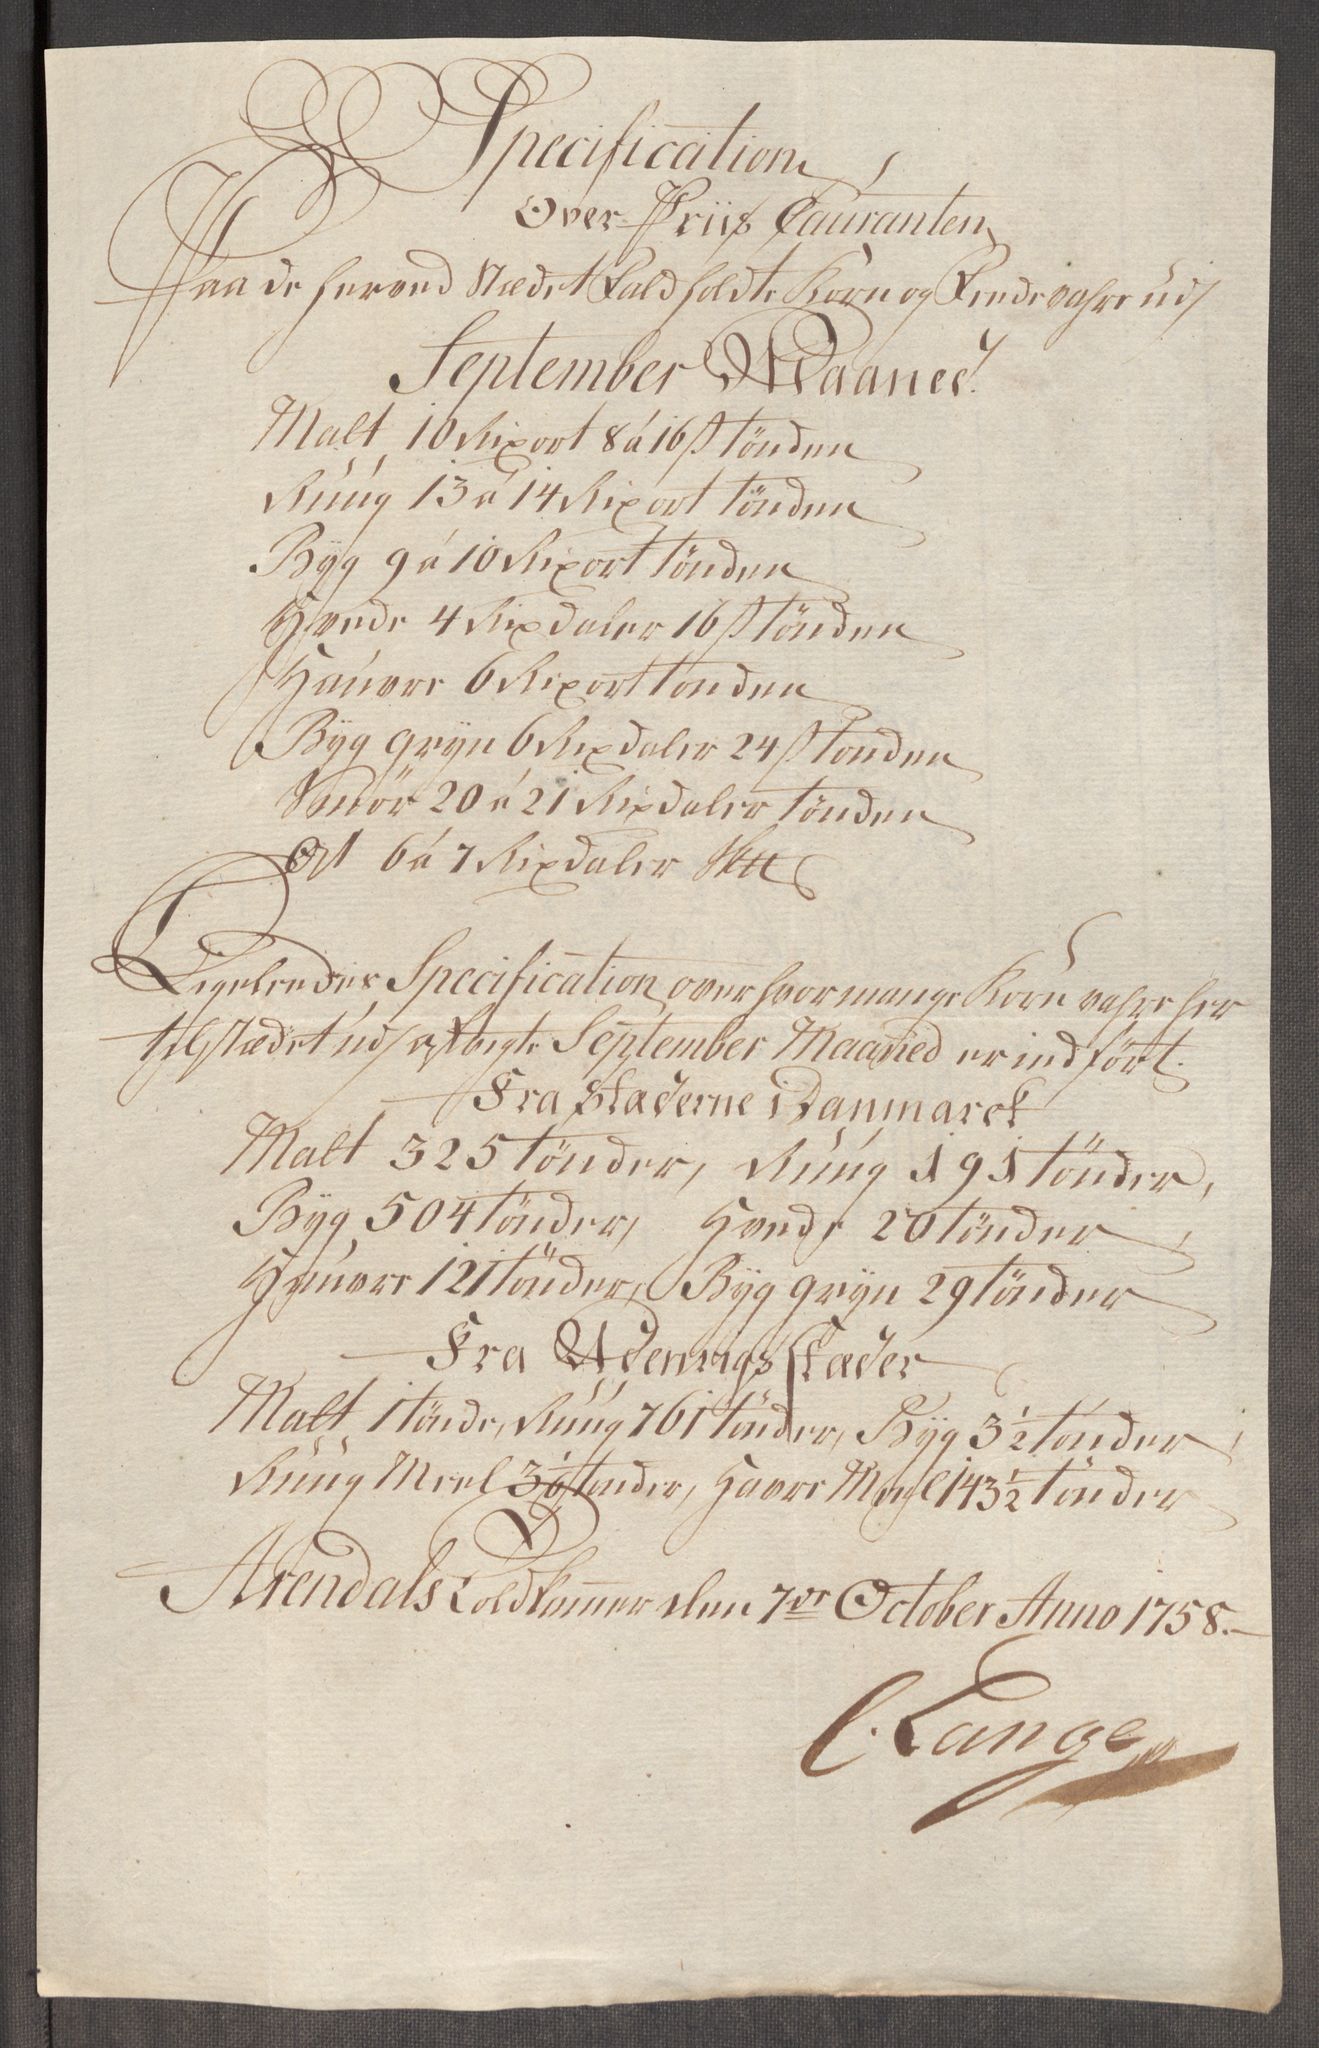 Specification
Over Priis Couranten
Paa de herved Stædet faldholdte Korn og Fædevahre udj
September Maaned.
Malt 10 Rixort 8 á 16 ß tönden
Rúúg 13 á 14 Rixort tönden
Byg 9 á 10 Rixort tönden
Hvede 4 Rixdaler 16 ß tönden
Haúvre 6 Rixort tönden
Byg gryn 6 Rixdaler 24 ß tönden
Smör 20 á 21 Rixdaler tönden
Ost 6 á 7 Rixdaler Sktt
Ligeleedes Specification over hvor mange Korn vahre her
til Stædet udj afvigte September Maaned er indfört.
Fra Stæderne i Danmarck
Malt 325 tönder, Rúúg 191 tönder,
Byg 504 tönder, Hvede 20 tönder
Haúvre 121 tönder, Byg gryn 29 tönder
Fra Udenrigs Stæder
Malt 1 tönde, Rúúg 761 tönder, Byg 3 1/2 tönder
Rúúg Meel 36 tönder, Havre Meel 143 1/2 tönder
Arendals Toldkamer den 7de October Anno 1758.
C. Lange